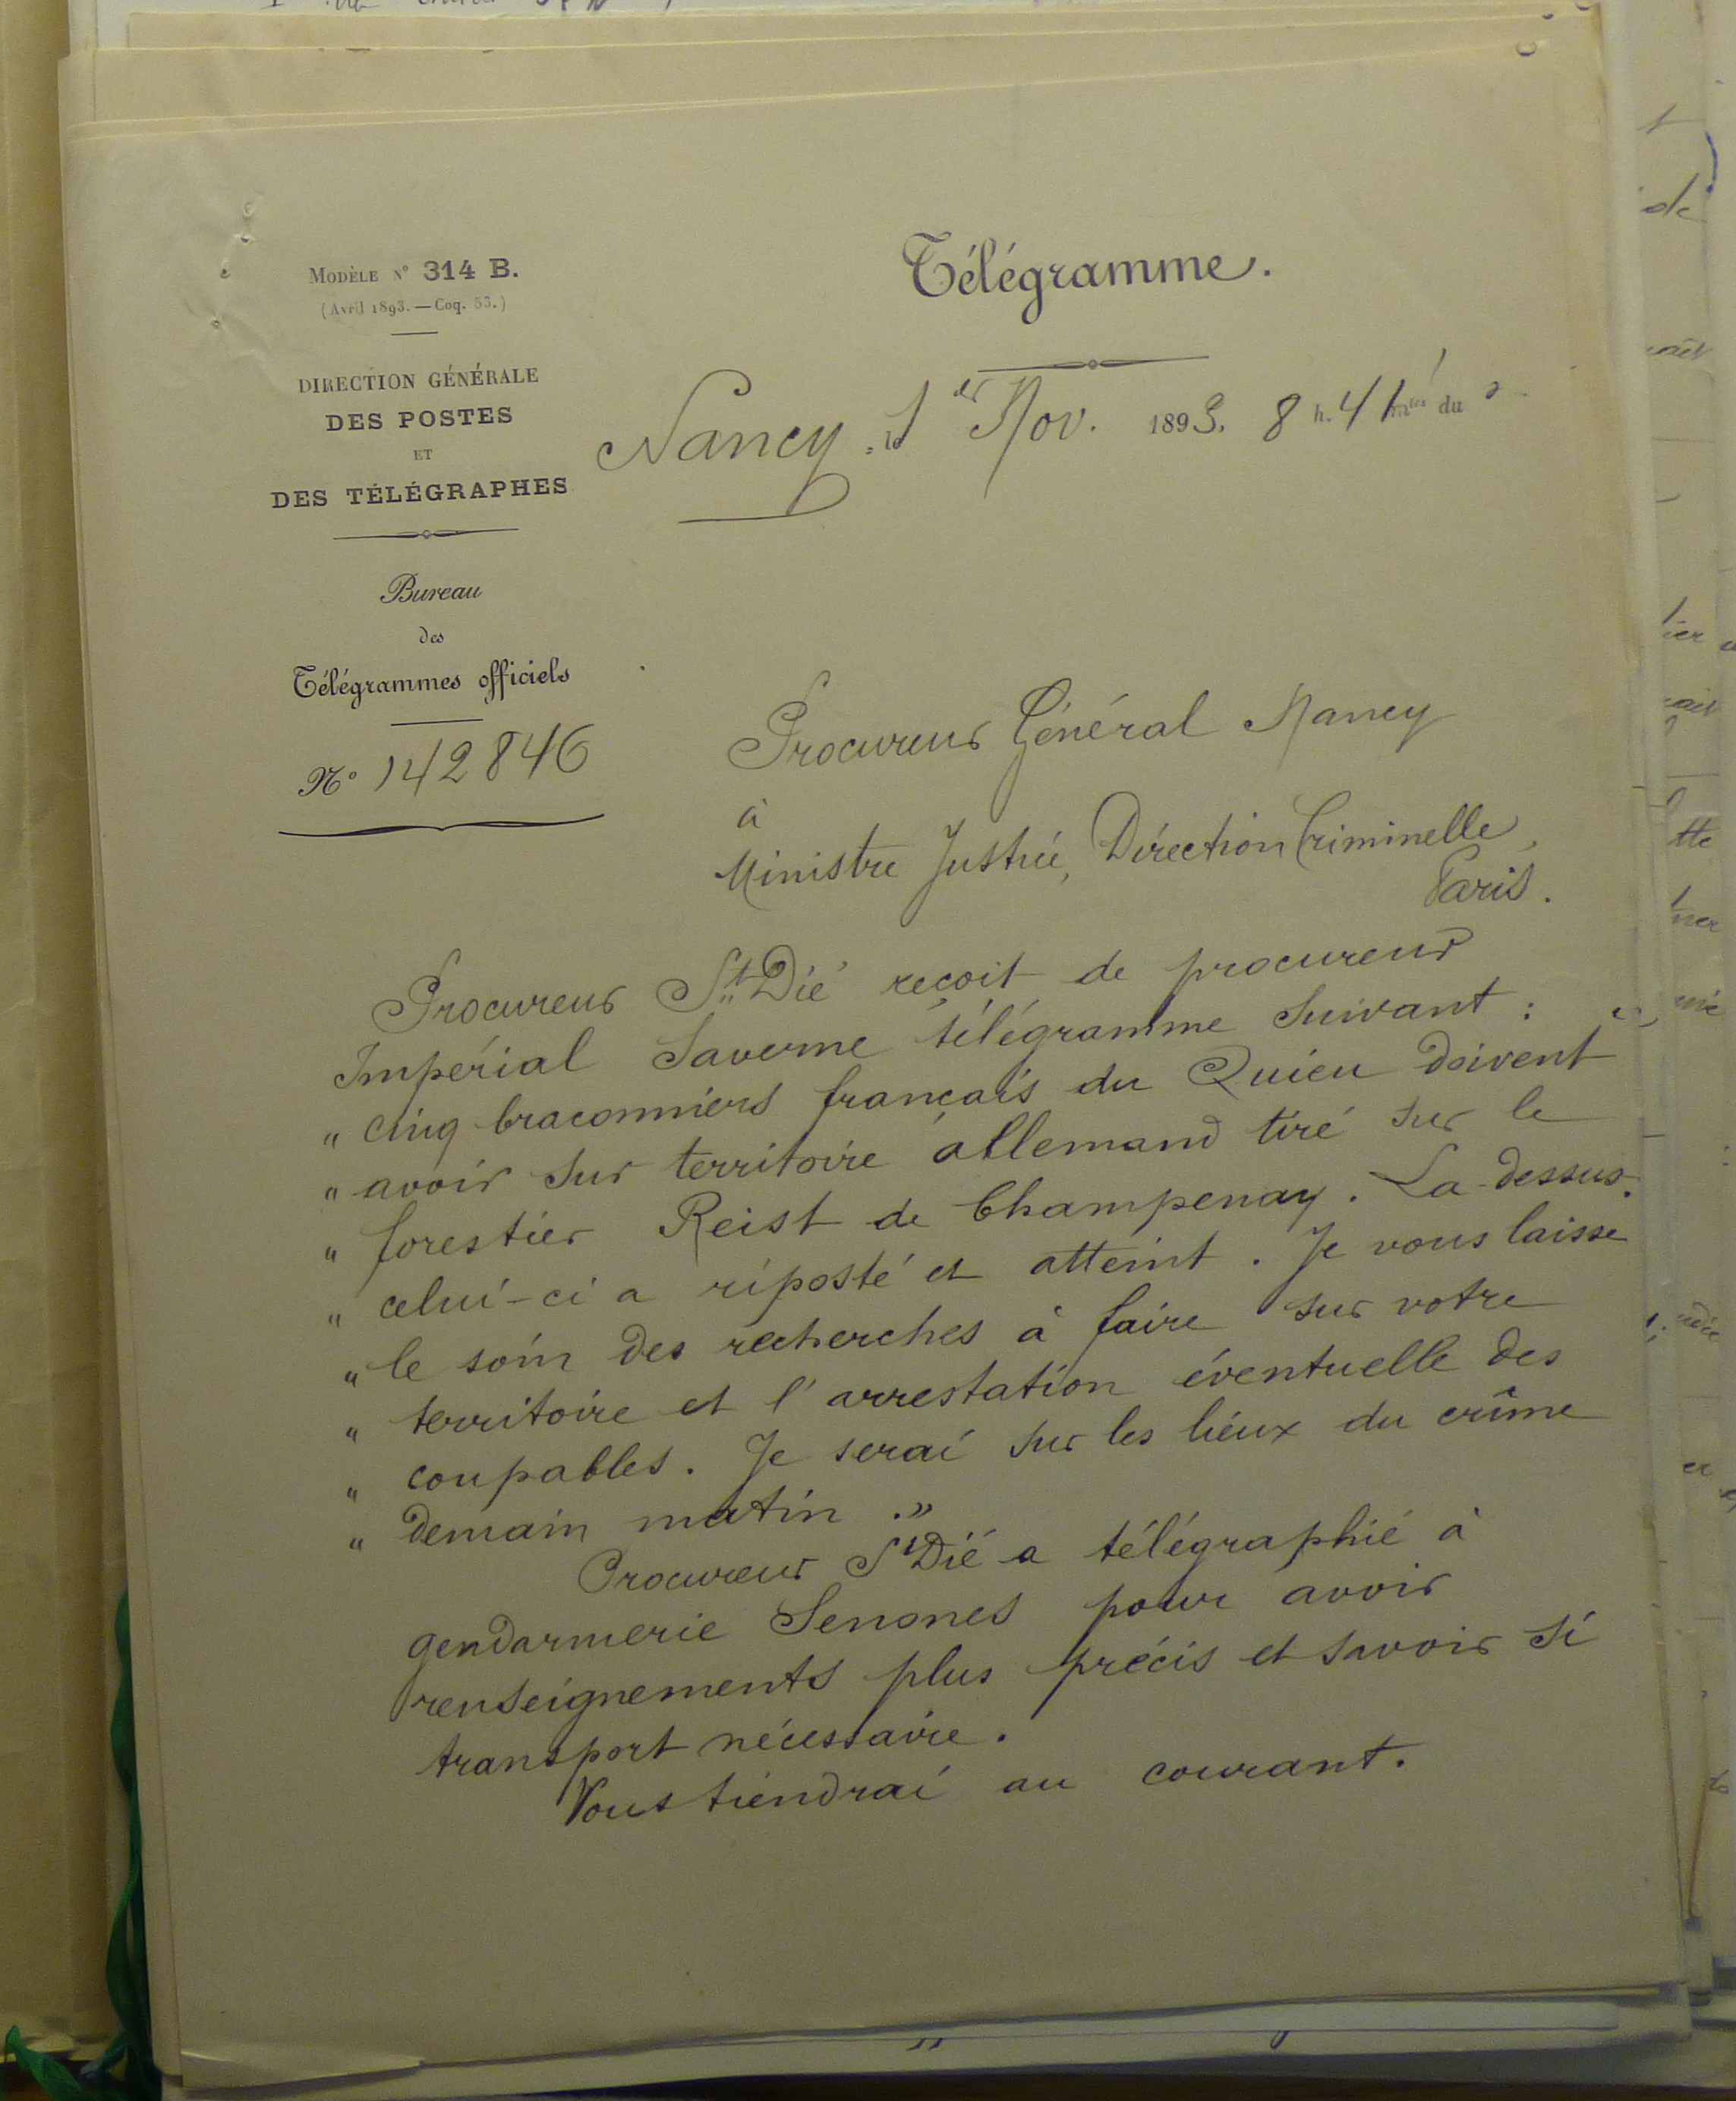 Modèle N° 314 B.
(Avril 1893. — Coq. 53.)
DIRECTION GÉNÉRALE
DES POSTES
ET
DES TÉLÉGRAPHES
Bureau
des
Télégrammes officiels
N° 142846
Télégramme.
Nancy, le 1er Nov. 1893. 8 h. 41 mtes du s
Procureur Général Nancy
à
Ministre Justice, Direction Criminelle,
Paris.
Procureur St Dié reçoit de procureur
Impérial Saverne télégramme suivant :
" cinq braconniers français du Quieu doivent
" avoir sur territoire allemand tiré sur le
" forestier Reist de Champenay. La-dessus.
" celui-ci a riposté et atteint. Je vous laisse
" le soin des recherches à faire sur votre
" territoire et l'arrestation éventuelle des
" coupables. Je serai sur les lieux du crime
" demain matin ."
Procureur St Dié a télégraphié à
gendarmerie Senones pour avoir
renseignements plus précis et savoir si
transport nécessaire.
Vous tiendrai au courant.